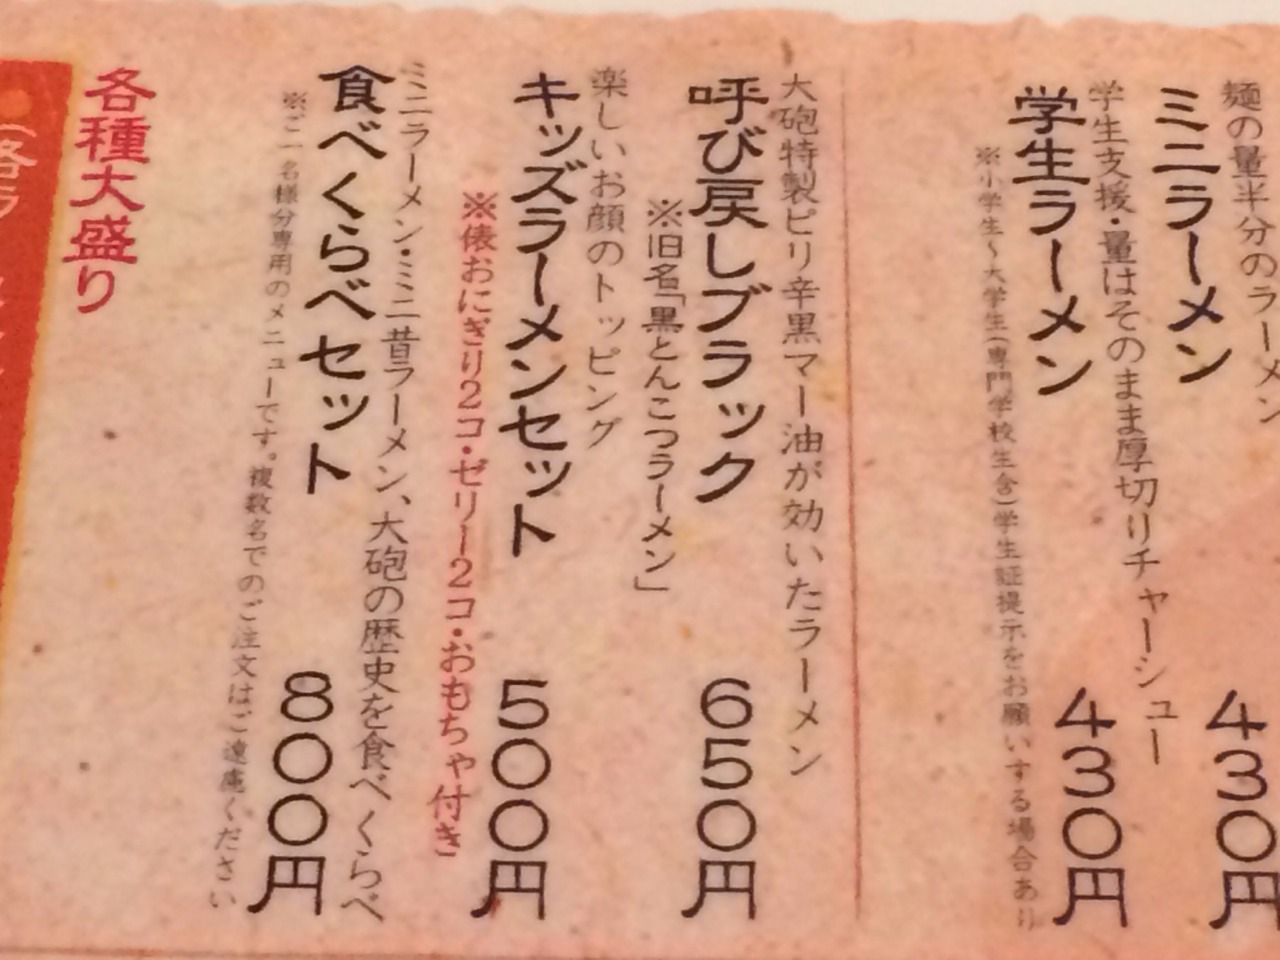 麺の量半分のラーメン
ミニラーメン 430円
学生支援・量はそのまま厚切りチャーシュー
学生ラーメン 430円
※小学生〜大学生(専門学校生含)学生証提示をお願いする場合あり
大砲特製ピリ辛黒マー油が効いたラーメン
呼び戻しブラック 650円
※旧名「黒とんこつラーメン」
楽しいお顔のトッピング
キッズラーメンセット 500円
※俵おにぎり2コ・ゼリー2コ・おもちゃ付き
ミニラーメン・ミニ昔ラーメン、大砲の歴史を食べくらべ
食べくらべセット 800円
※ご一名様分専用のメニューです。複数名でのご注文はご遠慮ください
各種大盛り